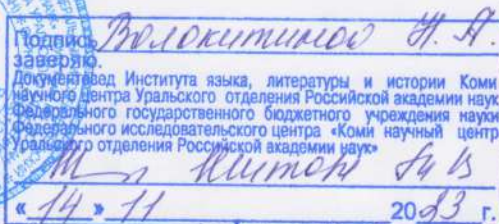 Подпись Волокитиной Н. А.
заверяю.
Документовед Института языка, литературы и истории Коми
научного центра Уральского отделения Российской академии наук
Федерального государственного бюджетного учреждения науки
Федерального исследовательского центра «Коми научный центр
Уральского отделения Российской академии наук»
« 14 » 11 2023 г.